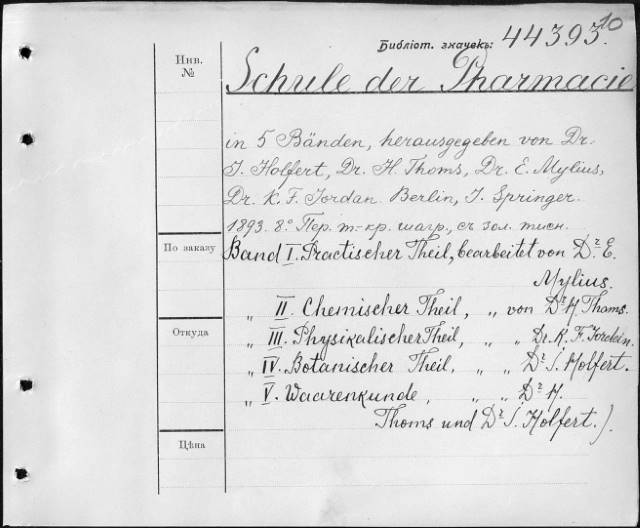 Библіот. значекъ: 44393.10
Инв.
№
Schule der Pharmacie
in 5 Bänden, herausgegeben von Dr.
J. Holfert, Dr. H. Thoms, Dr. E. Mylius,
Dr. K. F. Jordan. Berlin, J. Springer.
1893. 8.° Пер. т.-кр. шагр., съ зол. тисн.
По заказу
Band I. Practischer Theil, bearbeitet von Dr. E.
Mylius.
„ II. Chemischer Theil, „ von Dr H. Thoms.
Откуда
„ III. Physikalischer Theil, „ „ Dr. K. F. Jordan.
„ IV. Botanischer Theil, „ „ Dr J. Holfert.
„ V. Waarenkunde, „ „ Dr H.
Thoms und Dr J. Holfert.).
Цѣна